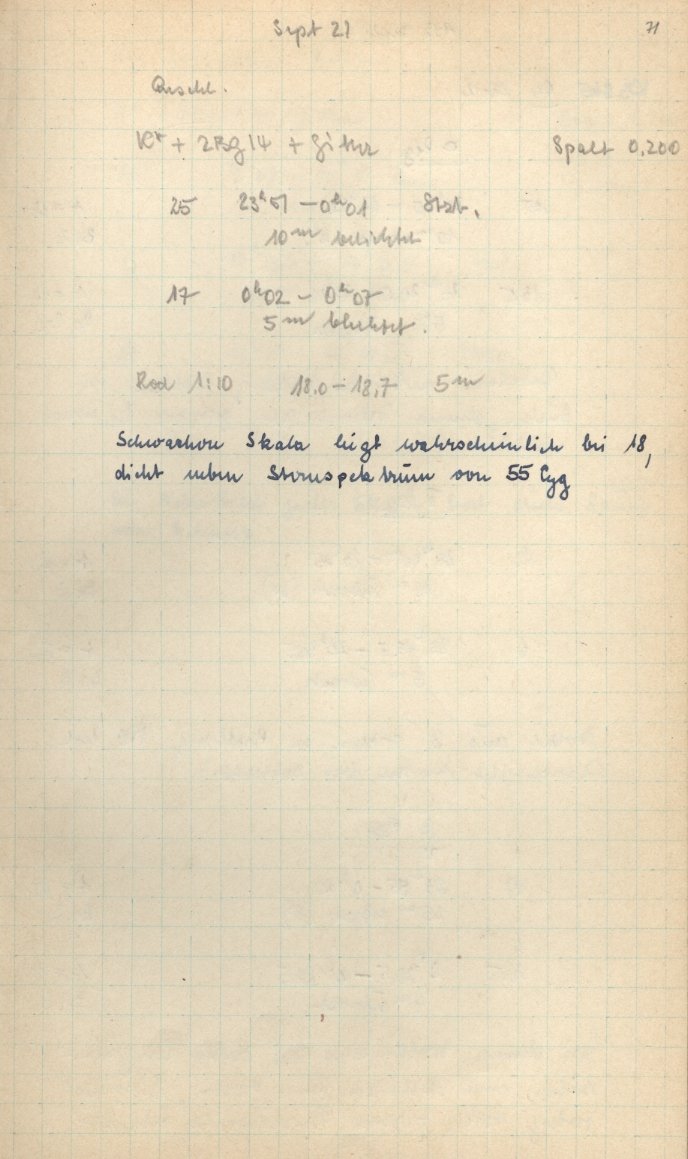 Sept 21 71
K + 2BG14 + Gitter Spalt 0,200
25 23h51 – 0h01
10m belichtet
17 0h02 – 0h07
5m belichtet.
Rod 1:10 18,0 – 18,7 5m
Skala liegt wahrscheinlich bei 18,
dicht neben Sternspektrum von 55 Cyg